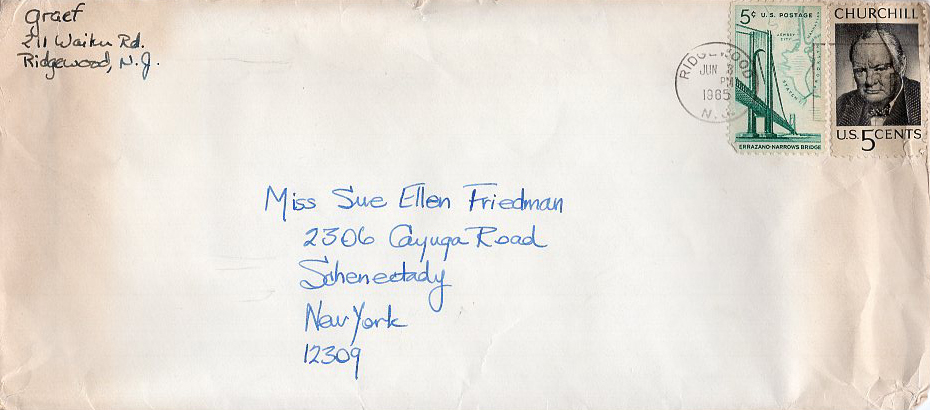 graef
211 Waiku Rd.
Ridgewood, N.J.
RIDGEWOOD
JUN
PM
1965
N.J.
5¢ U.S. POSTAGE
JERSEY CITY
STATEN
ERRAZANO-NARROWS BRIDGE
CHURCHILL
U.S. 5 CENTS
Miss Sue Ellen Friedman
2306 Cayuga Road
Schenectady
New York
12309